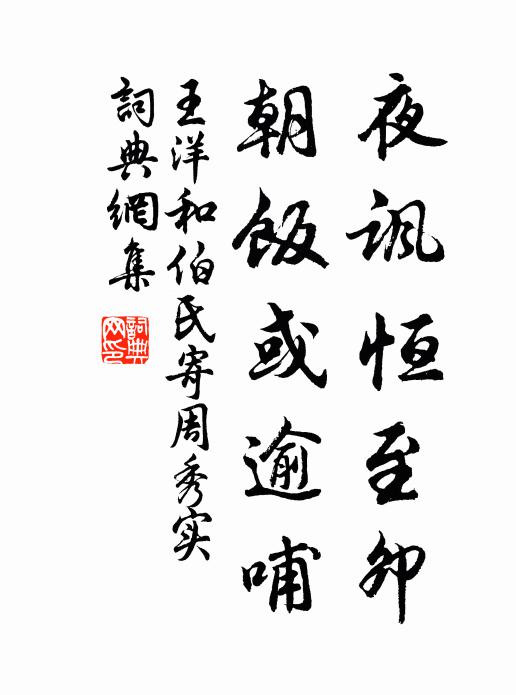 夜讽恒至卯
朝饭或逾哺
王洋和伯氏寄周秀实
詞典網集
詞典网印